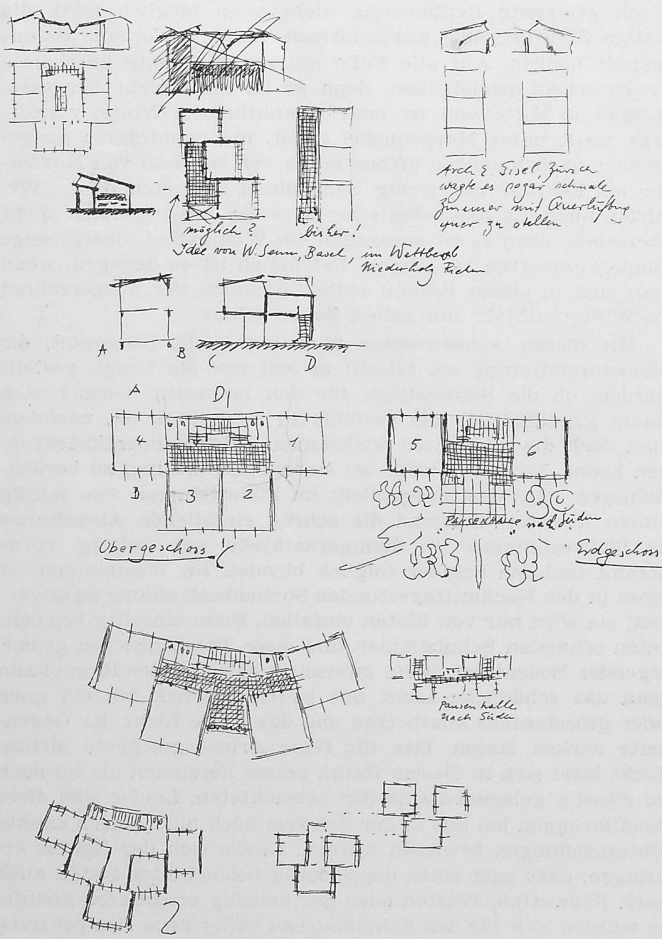 Arch E. Gisel, Zürich
wagte es sogar schmale
Zimmer mit Querlüftung
quer zu stellen
möglich? bisher!
Idee von W. Senn, Basel, im Wettbewerb
Niederholz Riehen
A B C D
A D
4
B 3 2
5 6
Pausenhalle nach Süden
Obergeschoss
Erdgeschoss
Pausenhalle
nach Süden
2